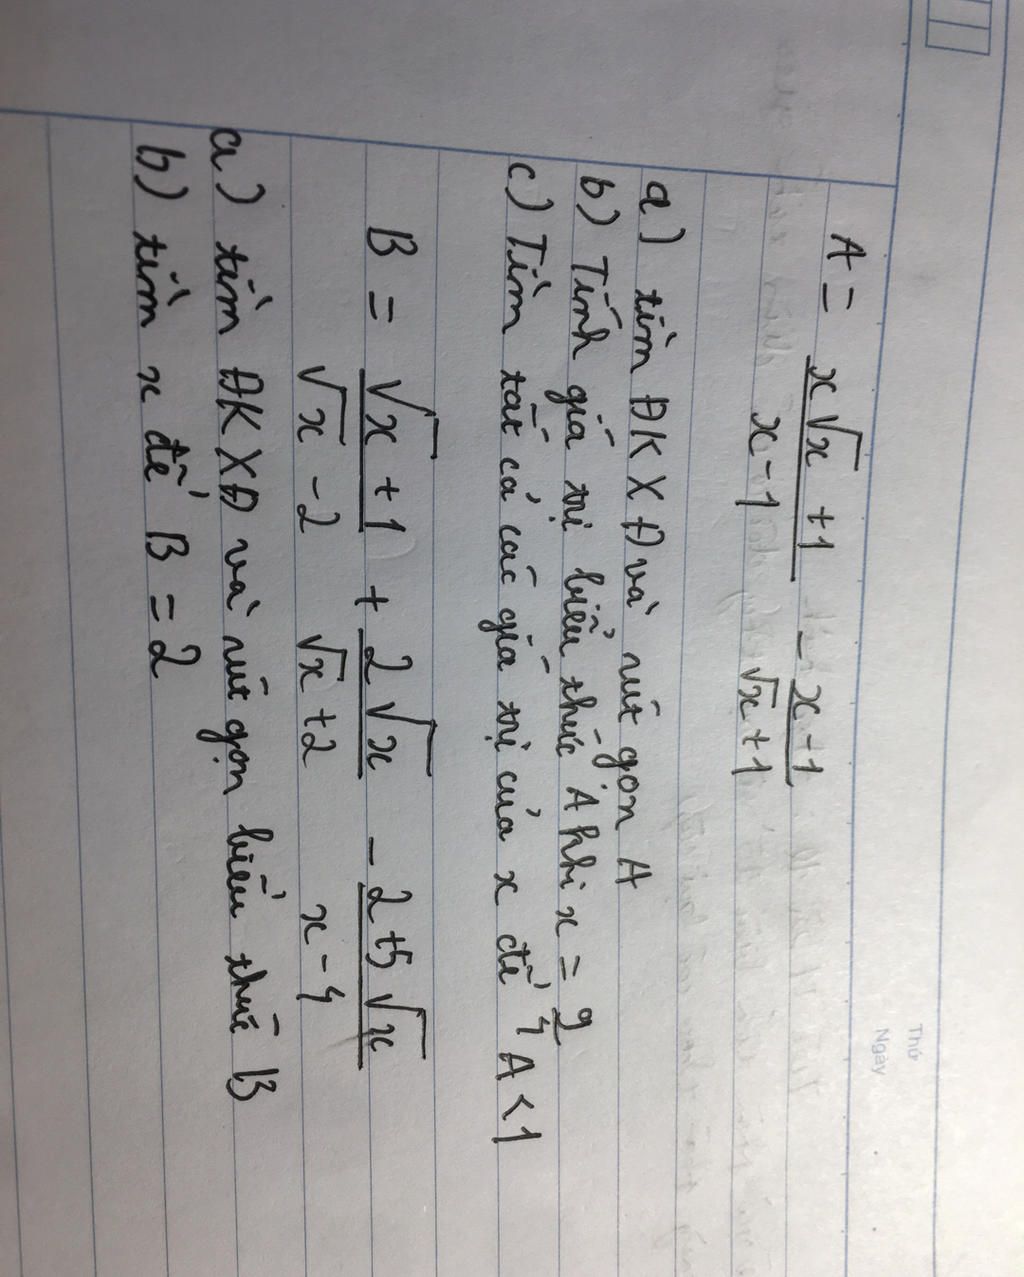 Thứ
Ngày
A = \frac{x\sqrt{x}+1}{x-1} - \frac{x-1}{\sqrt{x}+1}
a) tìm ĐKXĐ và rút gọn A
b) Tính giá trị biểu thức A khi x = \frac{9}{4}
c) Tìm tất cả các giá trị của x để A < 1
B = \frac{\sqrt{x}+1}{\sqrt{x}-2} + \frac{2\sqrt{x}}{\sqrt{x}+2} - \frac{2+5\sqrt{x}}{x-4}
a) tìm ĐKXĐ và rút gọn biểu thức B
b) tìm x để B = 2